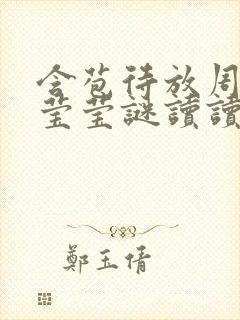 含苞待放周
莹莹謎讀讀
鄭玉倩